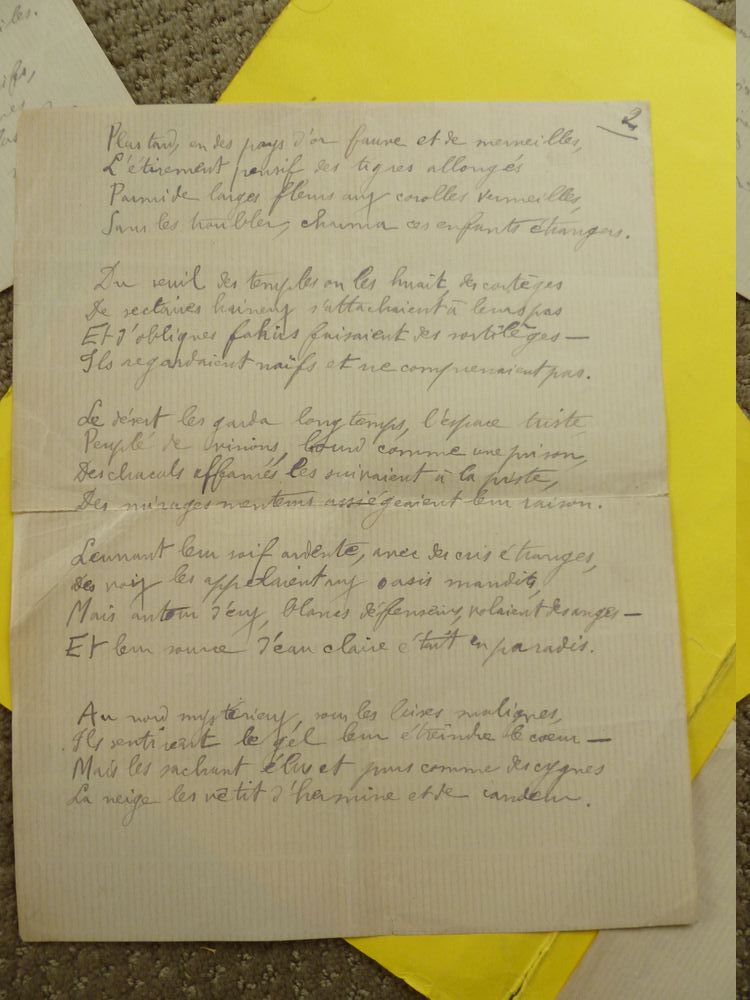 iles.
2
Plus tard, en des pays d'or fauve et de merveilles,
L'étirement pensif des tigres allongés
Parmi de larges fleurs aux corolles vermeilles,
Sans les troubler, charma ces enfants étrangers.
Du seuil des temples on les huait, des cortèges
De sectaires haineux s'attachaient à leurs pas
Et d'obliques fakirs faisaient des sortilèges —
Ils regardaient naïfs et ne comprenaient pas.
Le désert les garda longtemps, l'espace triste,
Peuplé de visions, lourd comme une prison,
Des chacals affamés les suivaient à la piste,
Des mirages menteurs assiégeaient leur raison.
Leurrant leur soif ardente, avec des cris étranges,
Des voix les appelaient aux oasis maudits,
Mais autour d'eux, blancs déffenseurs, volaient des anges —
Et leur source d'eau claire était en paradis.
Au nord mystérieux, sous les bises malignes,
Ils sentirent le gel leur étreindre le coeur —
Mais les sachant élus et purs comme des cygnes
La neige les vêtit d'hermine et de candeur.